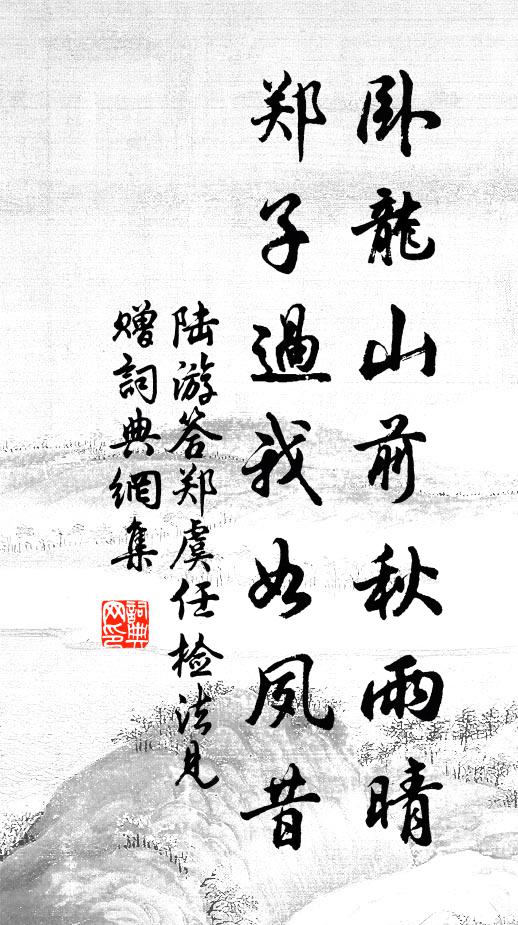 卧龍山前秋雨晴
郑子過我如夙昔
陆游答郑虞任检法见
赠詞典網集
詞典
网印